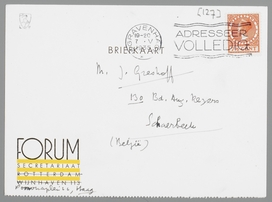 [127]
'S-GRAVENHAGE
ADRESSEER
VOLLEDIG
BRIEFKAART
M. J. Greshoff
130 Bd. Aug. Reyers
Schaerbeek
(België)
FORUM
SECRETARIAAT
ROTTERDAM
WIJNHAVEN 113